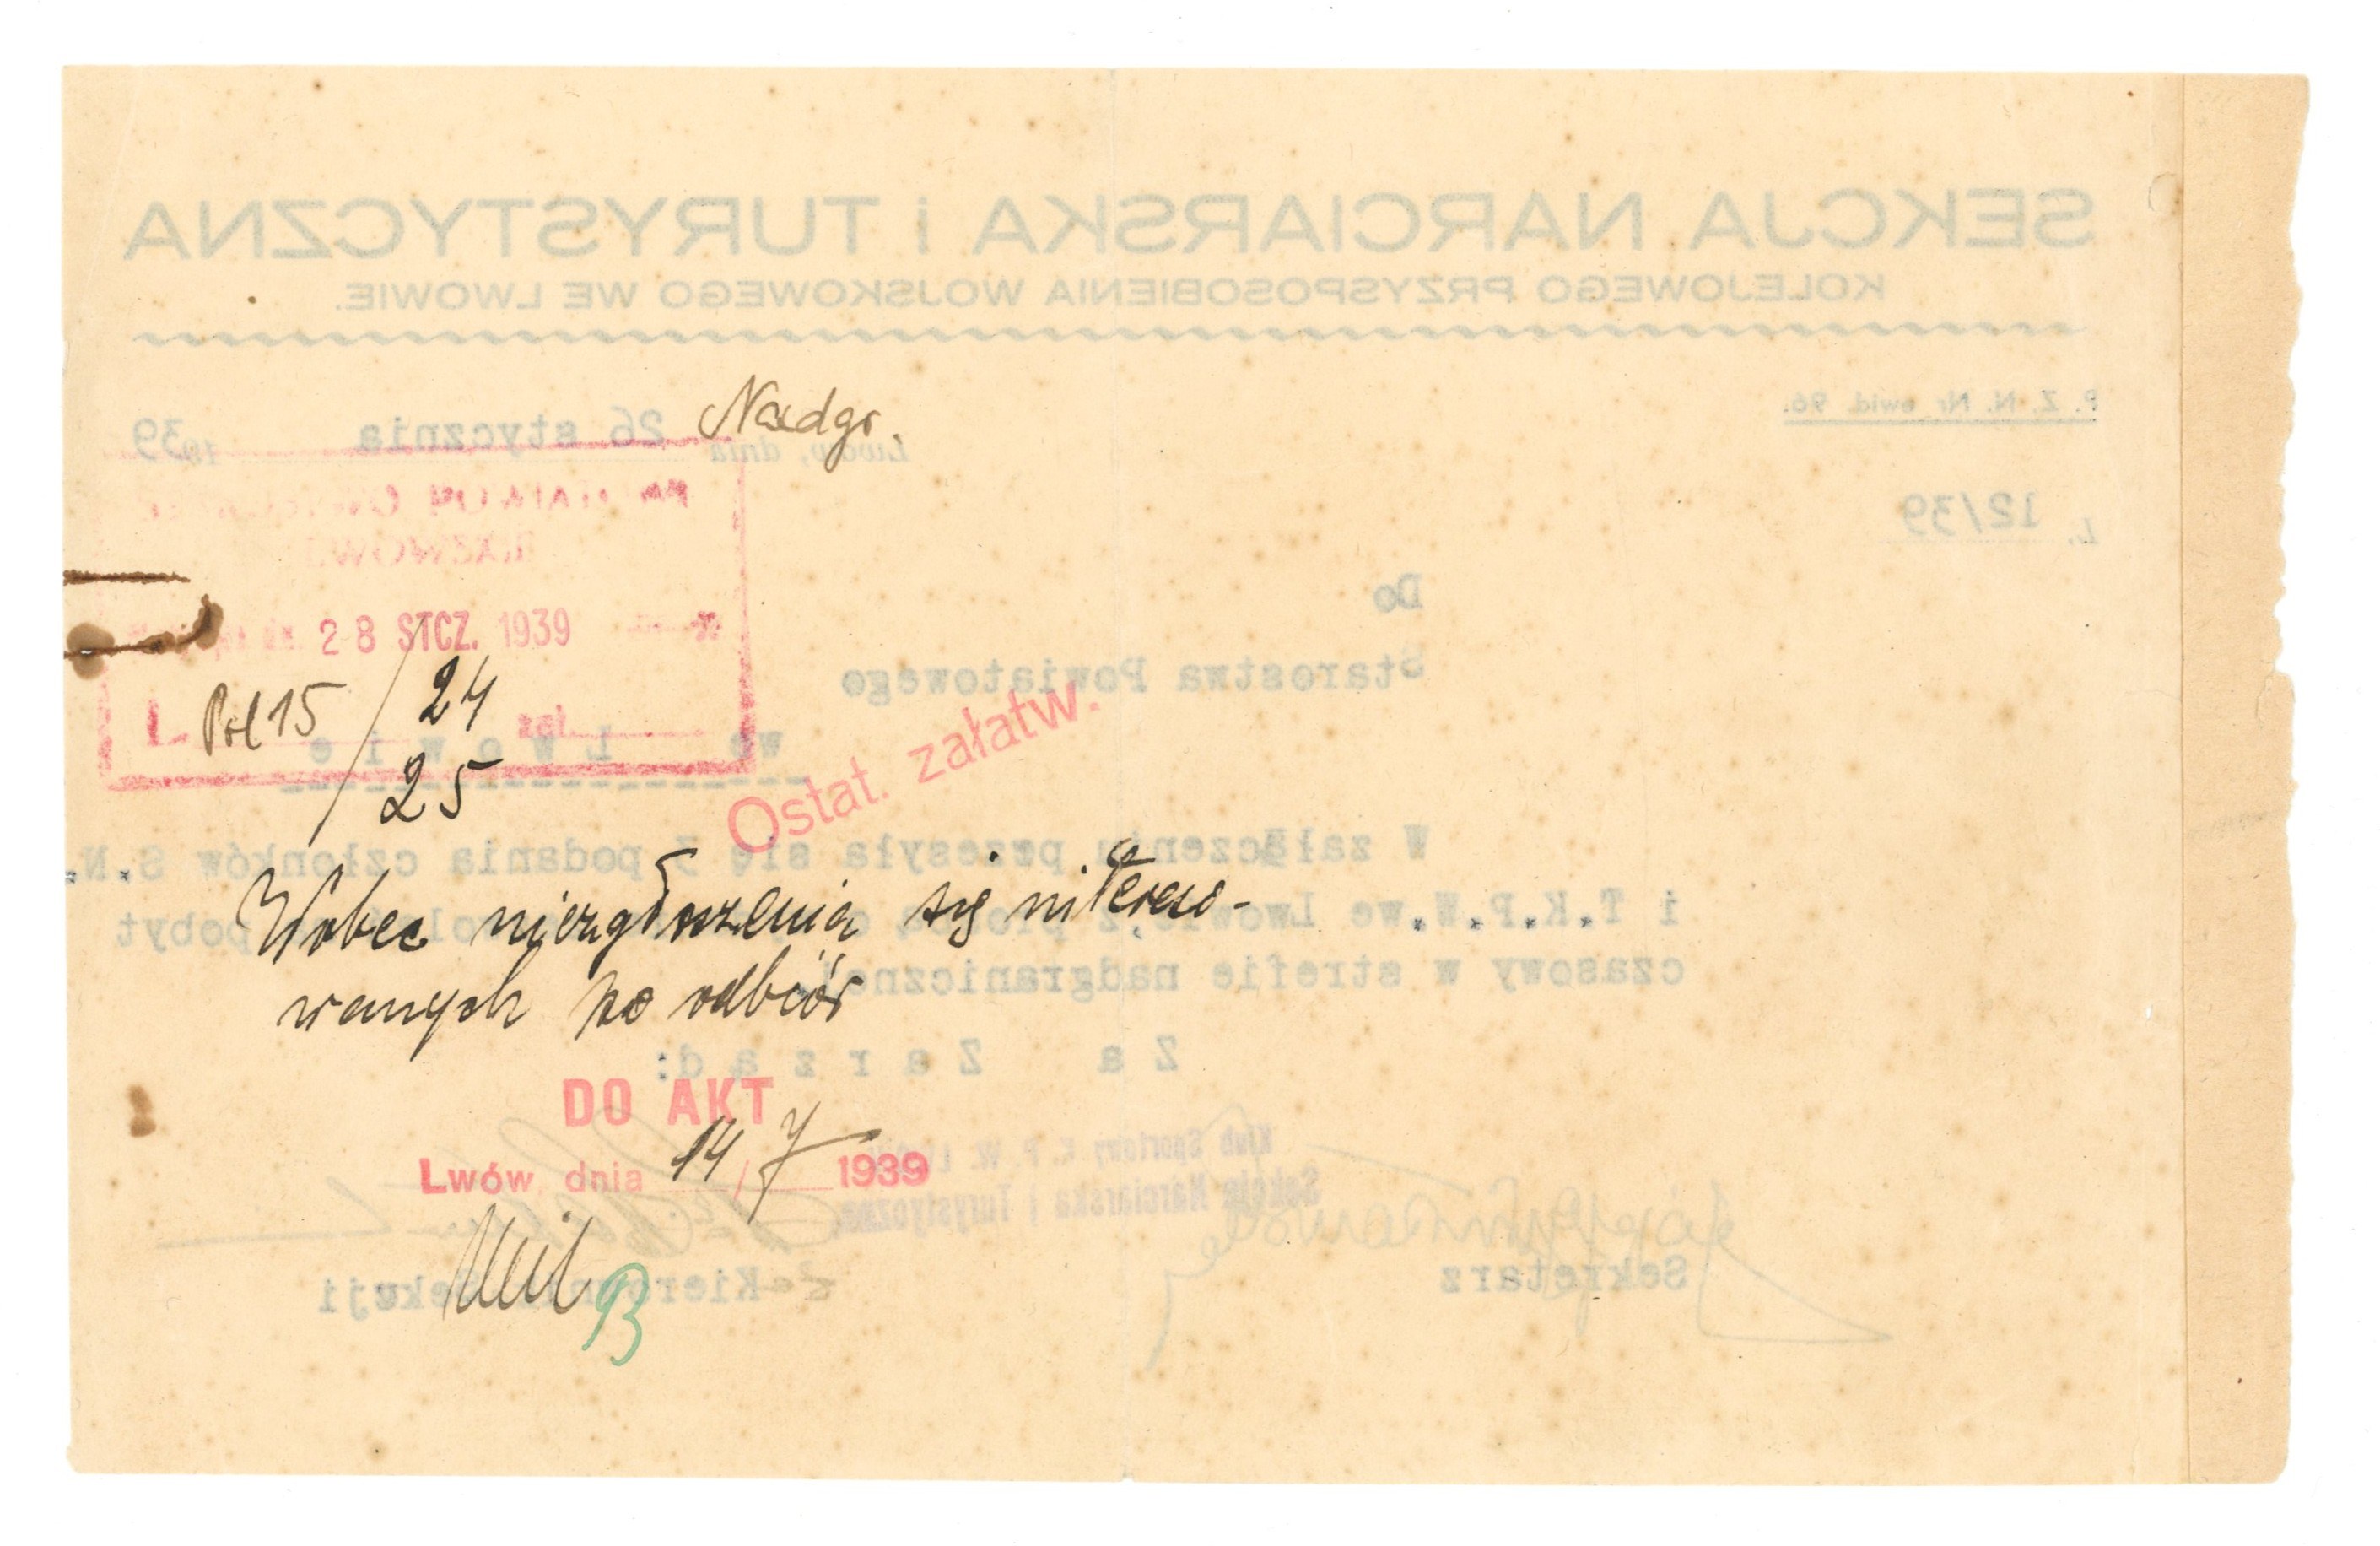 SEKCJA NARCIARSKA i TURYSTYCZNA
KOLEJOWEGO PRZYSPOSOBIENIA WOJSKOWEGO WE LWOWIE.
P. Z. N. Nr ewid. 96.
Lwów, dnia 26 stycznia 1939
Nadgr.
L. 12/39
STAROSTWO POWIATOWE
LWOWSKIE
28 STCZ. 1939
L. Pol 15/24 zał.
25
Do
Starostwa Powiatowego
we Lwowie
Ostat. załatw.
W załączeniu przesyła się 5 podania członków S.N.
i T.K.P.W. we Lwowie, z prośbą pobyt
czasowy w strefie nadgranicznej
Wobec niezgłoszenia się intereso-
wanych po odbiór
Za Zarząd:
DO AKT
Lwów dnia 14/7 1939
Klub Sportowy K. P. W. Lwów
Sekcja Narciarska i Turystyczna
Sekretarz
Kierownik Sekcji